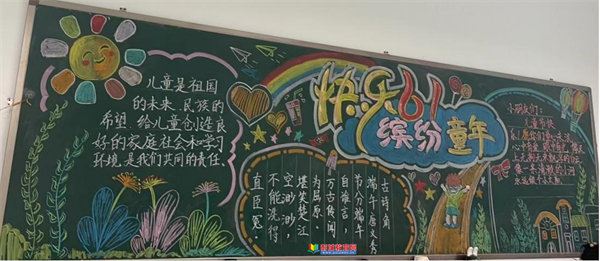 儿童是祖国
的未来、民族的
希望、给儿童创造良
好的家庭社会和学习
环境,是我们共同的责任。
快乐61
缤纷童年
古诗角
端午 唐 文秀
节分端午
自谁言，
万古传闻
为屈原。
堪笑楚江
空渺渺，
不能洗得
直臣冤。
小朋友们：
儿童节快